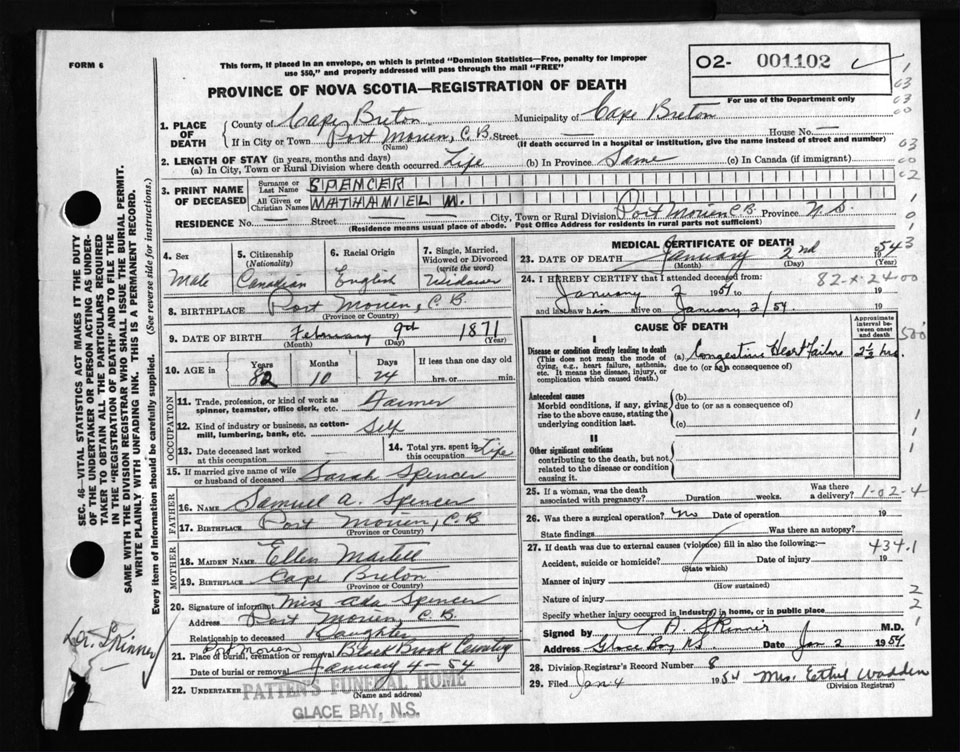 FORM 6
This form, if placed in an envelope, on which is printed "Dominion Statistics—Free, penalty for improper
use $50," and properly addressed will pass through the mail "FREE"
O2- 001102
For use of the Department only
PROVINCE OF NOVA SCOTIA—REGISTRATION OF DEATH
1. PLACE OF DEATH
County of Cape Breton Municipality of Cape Breton
If in City or Town Port Morien, C.B. Street — House No. —
(Name) (If death occurred in a hospital or institution, give the name instead of street and number)
2. LENGTH OF STAY (in years, months and days)
(a) In City, Town or Rural Division where death occurred Life (b) In Province Same (c) In Canada (if immigrant)
3. PRINT NAME OF DECEASED
Surname or Last Name SPENCER
All Given or Christian Names MATHANIEL M.
RESIDENCE No. — Street — City, Town or Rural Division Port Morien C.B. Province N.S.
(Residence means usual place of abode. Post Office Address for residents in rural parts not sufficient)
4. Sex
Male
5. Citizenship
(Nationality)
Canadian
6. Racial Origin
English
7. Single, Married,
Widowed or Divorced
(write the word)
Widower
8. BIRTHPLACE Port Morien, C.B.
(Province or Country)
9. DATE OF BIRTH February 9th 1871
(Month) (Day) (Year)
10. AGE in
Years Months Days If less than one day old
82 10 24 hrs. or min.
OCCUPATION
11. Trade, profession, or kind of work as
spinner, teamster, office clerk, etc. Farmer
12. Kind of industry or business, as cotton-
mill, lumbering, bank, etc. Self
13. Date deceased last worked
at this occupation —
14. Total yrs. spent in
this occupation Life
15. If married give name of wife
or husband of deceased Sarah Spencer
FATHER
16. NAME Samuel A. Spencer
17. BIRTHPLACE Port Morien, C.B
(Province or Country)
MOTHER
18. MAIDEN NAME Ellen Martell
19. BIRTHPLACE Cape Breton
(Province or Country)
20. Signature of informant Miss Ada Spencer
Address Port Morien, C.B.
Relationship to deceased Daughter
21. Place of burial, cremation or removal Port Morien Black Brook Cemetery
Date of burial or removal January 4-54
22. UNDERTAKER PATTEN'S FUNERAL HOME
(Name and address)
GLACE BAY, N.S.
MEDICAL CERTIFICATE OF DEATH
23. DATE OF DEATH January 2nd 1954
(Month) (Day) (Year)
24. I HEREBY CERTIFY that I attended deceased from:
January 2 1954 19
and last saw him alive on January 2/54. 19
82-x-24 00
CAUSE OF DEATH
Approximate
interval be-
tween onset
and death
I
Disease or condition directly leading to death
(This does not mean the mode of
dying, e.g., heart failure, asthenia,
etc. It means the disease, injury, or
complication which caused death.)
(a) Congestive Heart Failure 2½ hrs.
due to (or as a consequence of)
Antecedent causes
Morbid conditions, if any, giving
rise to the above cause, stating the
underlying condition last.
(b)
due to (or as a consequence of)
(c)
II
Other significant conditions
contributing to the death, but not
related to the disease or condition
causing it.
25. If a woman, was the death
associated with pregnancy? Duration weeks. Was there
a delivery? 1-02-4
26. Was there a surgical operation? No Date of operation 19
State findings Was there an autopsy?
27. If death was due to external causes (violence) fill in also the following:— 434.1
Accident, suicide or homicide? Date of injury 19
(State which)
Manner of injury
(How sustained)
Nature of injury
Specify whether injury occurred in industry, in home, or in public place
Signed by A Skinner M.D.
Address Glace Bay NS Date Jan 2 1954
28. Division Registrar's Record Number 8
29. Filed Jan 4 1954 Mrs. Ethel Wadden
(Division Registrar)
SEC. 46—VITAL STATISTICS ACT MAKES IT THE DUTY
OF THE UNDERTAKER OR PERSON ACTING AS UNDER-
TAKER TO OBTAIN ALL THE PARTICULARS REQUIRED
IN THE "REGISTRATION OF DEATH" AND TO FILE THE
SAME WITH THE DIVISION REGISTRAR WHO SHALL ISSUE THE BURIAL PERMIT.
WRITE PLAINLY WITH UNFADING INK. THIS IS A PERMANENT RECORD.
Every item of Information should be carefully supplied. (See reverse side for instructions.)
Dr. Skinner